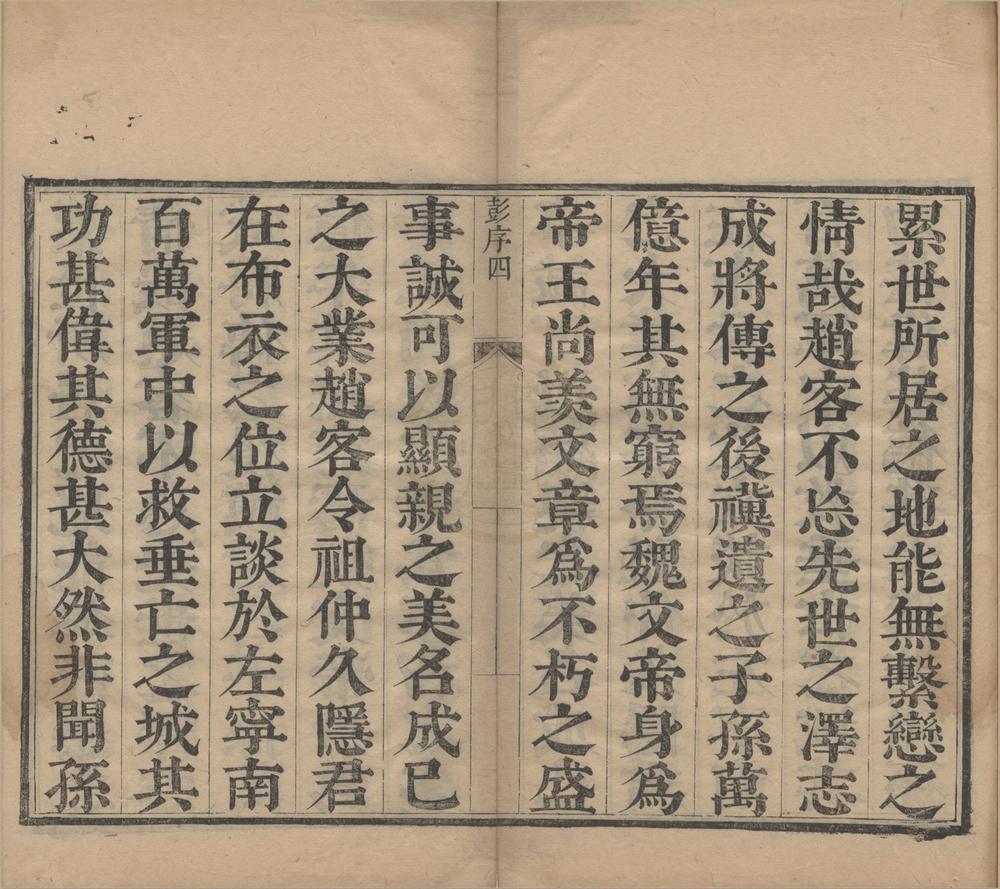 累世所居之地能無繫戀之
情哉趙客不忘先世之澤志
成將傳之後禩遺之子孫萬
億年其無窮焉魏文帝身為
帝王尚羨文章為不朽之盛
彭序四
事誠可以顯親之美名成已
之大業趙客令祖仲久隱君
在布衣之位立談於左寧南
百萬軍中以救垂亡之城其
功甚偉其德甚大然非聞孫